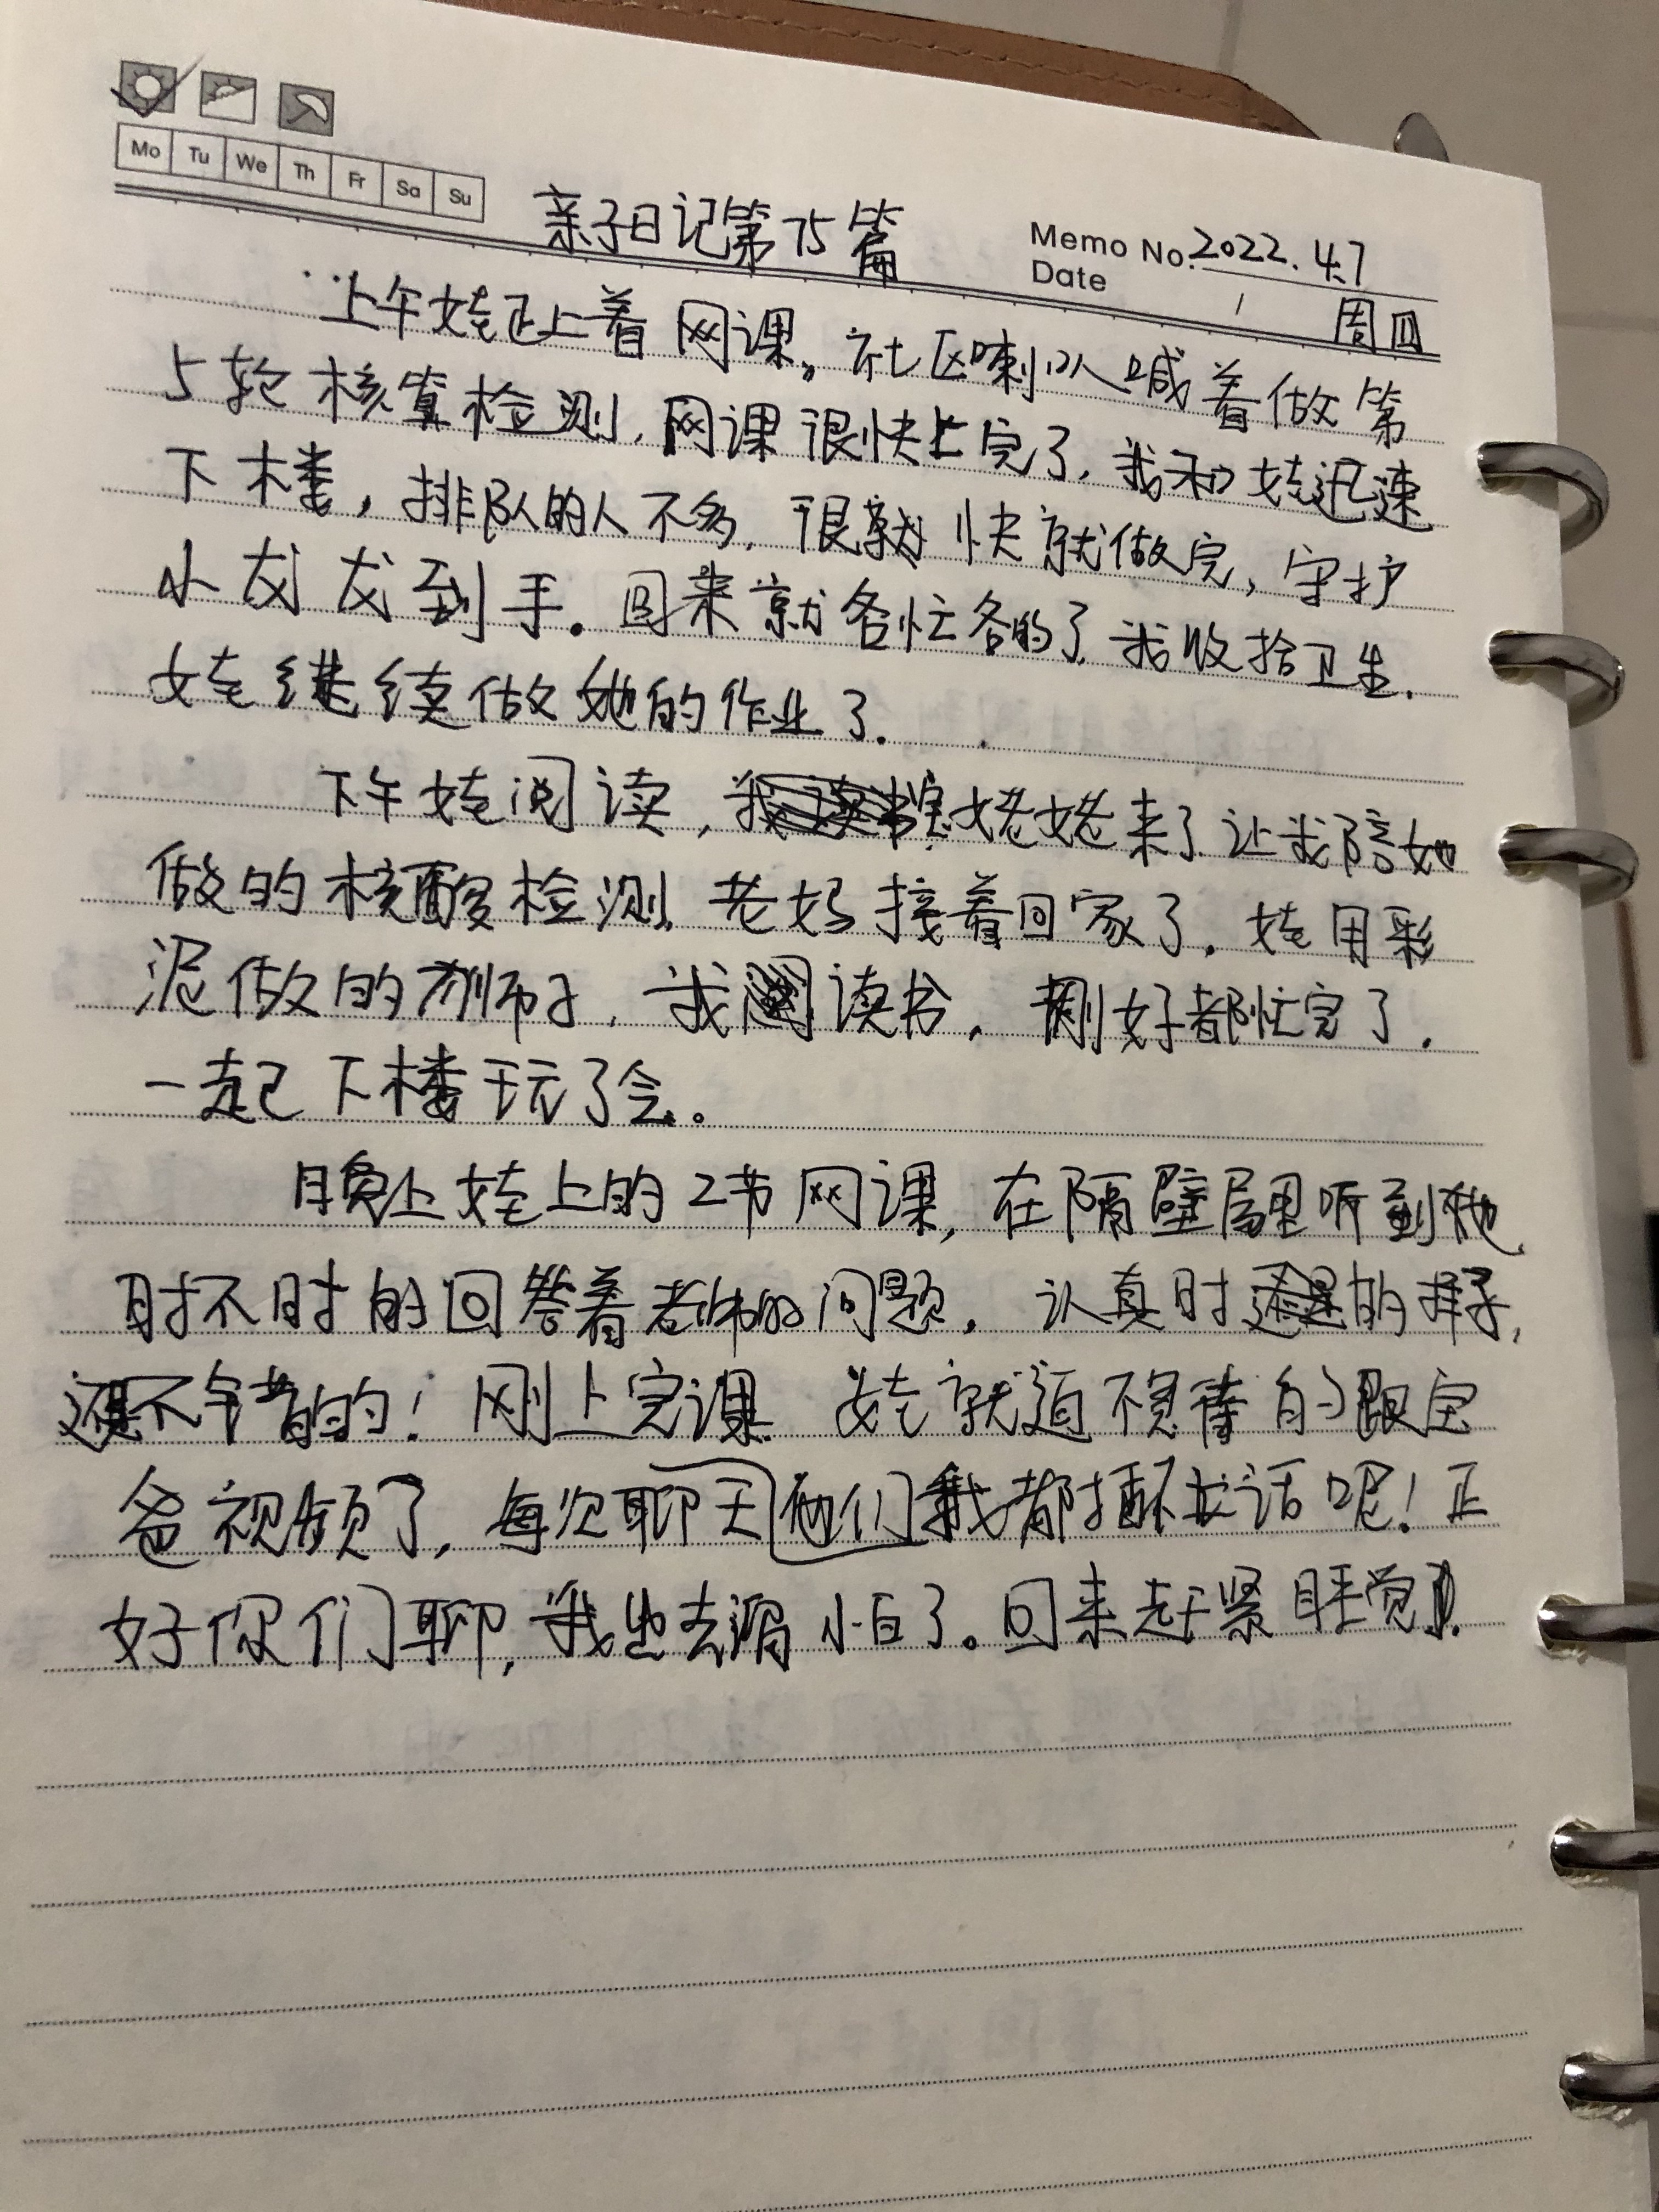 Mo Tu We Th Fr Sa Su
亲子日记第75篇
Memo No. 2022.4.7
Date / 周四
上午娃正上着网课。社区喇叭喊着做第
5轮核算检测,网课很快上完了,我和娃迅速
下楼,排队的人不多,很快就做完,守护
小龙龙到手。回来就各忙各的了,我收拾卫生.
娃继续做她的作业了.
下午娃阅读,姥姥来了让我陪她
做的核酸检测,老妈接着回家了.娃用彩
泥做的狮子,我读书,刚好都忙完了.
一起下楼玩了会。
晚上娃上的2节网课,在隔壁屋里听到她
时不时的回答着老师的问题,认真时的样子,
还不错的!刚上完课,娃就迫不急待的跟宝
爸视频了,每次聊天他们我都插不上话呢!正
好你们聊,我也去遛小白了。回来赶紧睡觉.